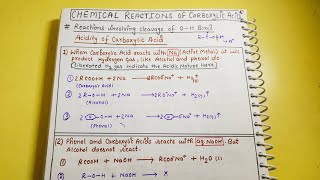 CHEMICAL REACTIONS OF Carboxylic Acid
# Reactions involving cleavage of O-H Bond
Acidity of Carboxylic Acid
1) When Carboxylic Acid reacts with Na (Active Metals) it will
product Hydrogen gas, like Alcohol and phenol do
(Liberated H₂ gas indicate the Acidic Nature)
① 2RCOOH + 2Na → 2RCOO⁻Na⁺ + H₂↑
(Carboxylic Acid)
② 2R-O-H + 2Na → 2R-O⁻Na⁺ + H₂(g)↑
(Alcohol)
③ 2 -O-H + 2Na → 2 -O⁻Na⁺ + H₂(g)↑
(Phenol)
(2) Phenol and Carboxylic Acids reacts with aq. NaOH, But
Alcohol doesnot react.
① RCOOH + NaOH → RCOO⁻Na⁺ + H₂O (l)
② R-O-H + NaOH → ×